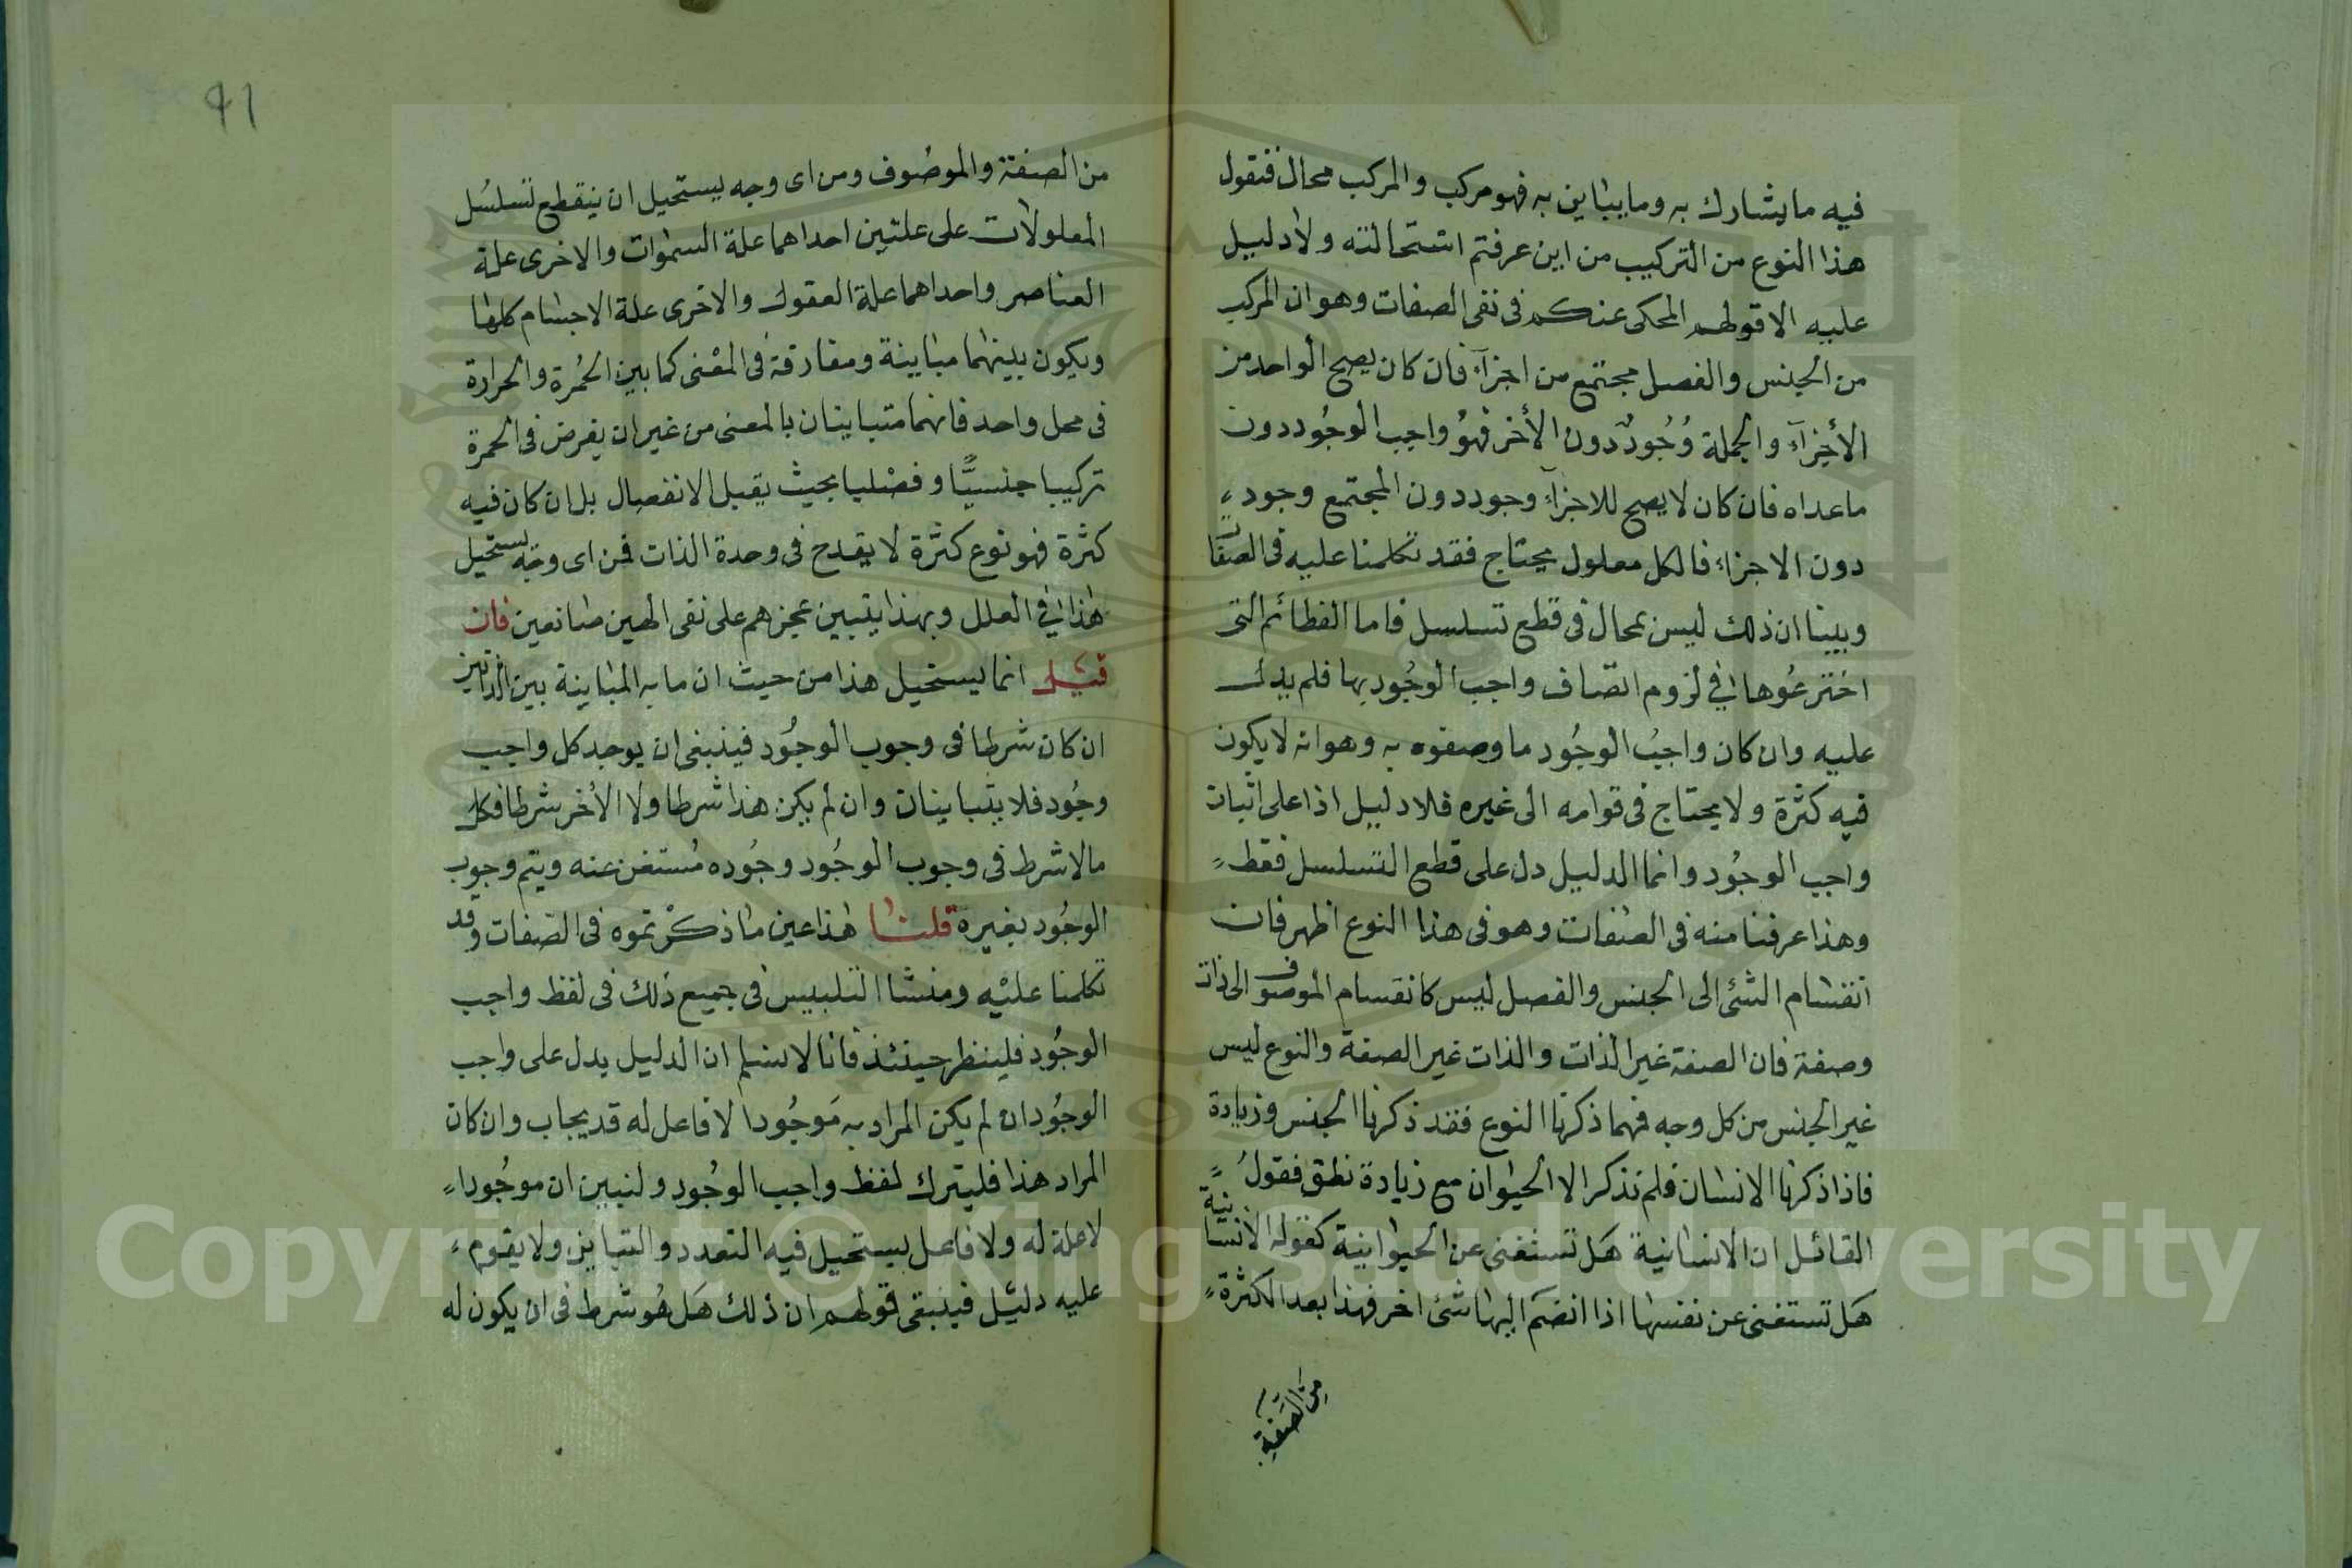 فيه ما يشارك به وما يباين به فهو مركب والمركب محال فنقول
هذا النوع من التركيب من اين عرفتم استحالته ولا دليل
عليه الا قولهم المحكى عنكم فى نفى الصفات وهو ان المركب
من الجنس والفصل مجتمع من اجزآء فان كان يصح الواحد من
الأجزآء والجملة وُجُودٌ دون الأخر فهُو واجب الوجُود دون
ما عداه فان كان لا يصح للاجزآء وجود دون المجتمع وجود
دون الاجزاء فالكل معلول يحتاج فقد تكلمنا عليه فى الصفات
وبينا ان ذلك ليس بمحال فى قطع تسلسل فاما العظائم التى
اخترعُوها فى لزوم اتصاف واجب الوجُود بها فلم يدل
عليه وان كان واجبُ الوجُود ما وصفوه به وهو انه لا يكون
فيه كثرة ولا يحتاج فى قوامه الى غيره فلا دليل اذا على اثبات
واجب الوجُود وانما الدليل دل على قطع التسلسل فقط
وهذا عرفنا منه فى الصفات وهو فى هذا النوع اظهر فان
انقسام الشئ الى الجنس والفصل ليس كانقسام الموصوف الى ذات
وصفة فان الصفة غير الذات والذات غير الصفة والنوع ليس
غير الجنس من كل وجه فمهما ذكرنا النوع فقد ذكرنا الجنس وزيادة
فاذا ذكرنا الانسان فلم نذكر الا الحيوان مع زيادة نطق فقولُ
القائل ان الانسانية هَل تستغنى عن الحيوانية كقوله الانسانية
هَل تستغنى عن نفسها اذا انضمَ اليها شئ اخر فهذا بعد الكثرة
مِنَ الصَفةِ
41
من الصفة والموصُوف ومن اى وجه يستحيل ان ينقطع تسلسُل
المعلولات على علتين احداهما علة السموات والاخرى علة
العناصر واحداهما علة العقول والاخرى علة الاجسام كلها
ويكون بينهما مباينة ومفارقة فى المعْنى كما بين الحُمرة والحرارة
فى محل واحد فانهما متباينان بالمعنى من غير ان يفرض فى الحمرة
تركيبا جنسيًّا وفصليا بحيث يقبل الانفصال بل ان كان فيه
كثرة فهو نوع كثرة لا يقدح فى وحدة الذات فمن اى وجه يستحيل
هذا فى العلل وبهذا يتبين عجزهم على نفى الهين صانعين فان
قيل انما يستحيل هذا من حيث ان ما به المباينة بين الذاتين
ان كان شرطا فى وجوب الوجُود فينبغى ان يوجد كل واجب
وجُود فلا يتباينان وان لم يكن هذا شرطا ولا الأخر شرطا فكل
مالا شرط فى وجوب الوجُود وجُوده مُستغن عنه ويتم وجوب
الوجُود بغيره قلنا هذا عين ما ذكرتموه فى الصفات وقد
تكلمنا عليْه ومنشا التلبيس فى جميع ذلك فى لفظ واجب
الوجُود فلينظر حينئذ فانا لا نسلم ان الدليل يدل على واجب
الوجُود ان لم يكن المراد به مَوجُودا لا فاعل له قد يجاب وان كان
المراد هذا فليترك لفظ واجب الوجُود ولنبين ان موجُودا
لا علة له ولا فاعل يستحيل فيه التعدد والتباين ولا يقوم
عليه دليل فيبقى قولهم ان ذلك هَل هُو شرط فى ان يكون له
Copyright © King Saud University